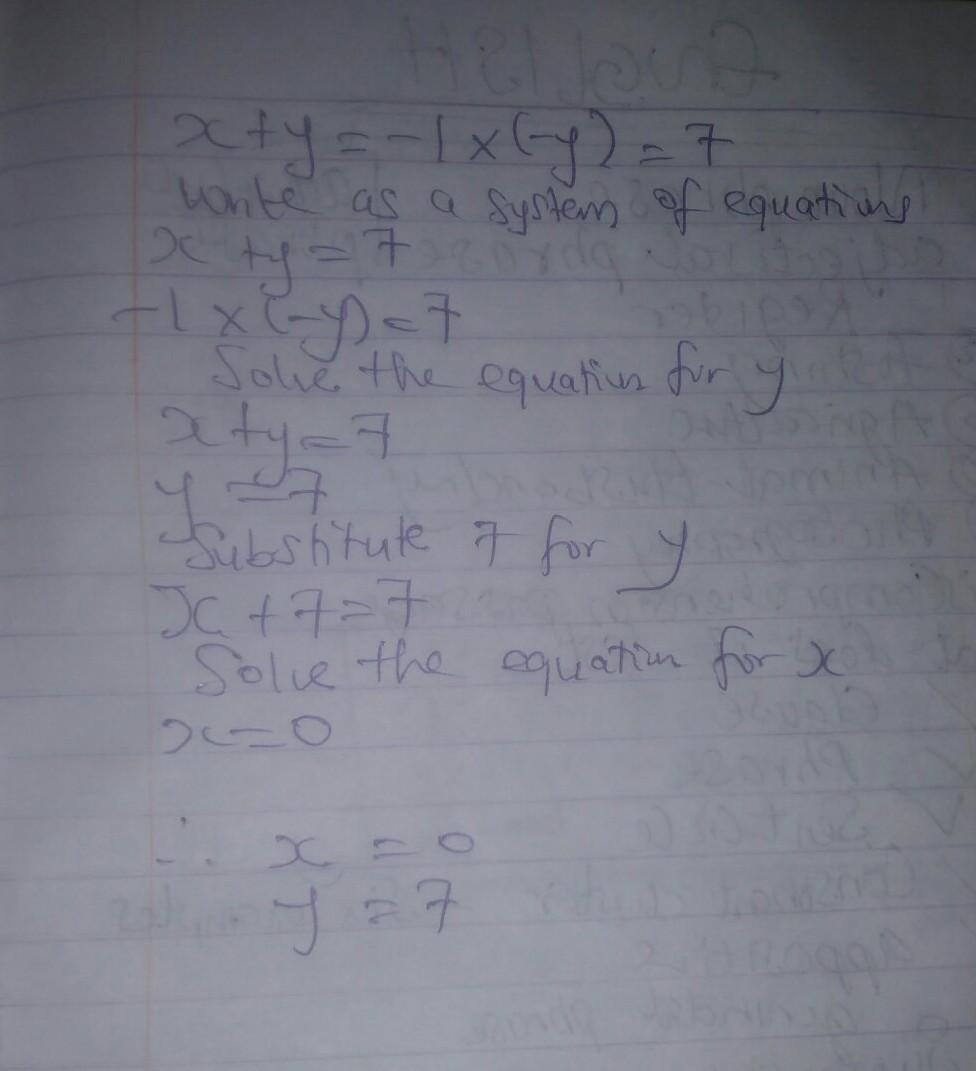 x+y=-1x(-y)=7
write as a system of equations
x+y=7
-1x(-y)=7
Solve the equation for y
x+y=7
y=7
Substitute 7 for y
x+7=7
Solve the equation for x
x=0
∴ x=0
y=7